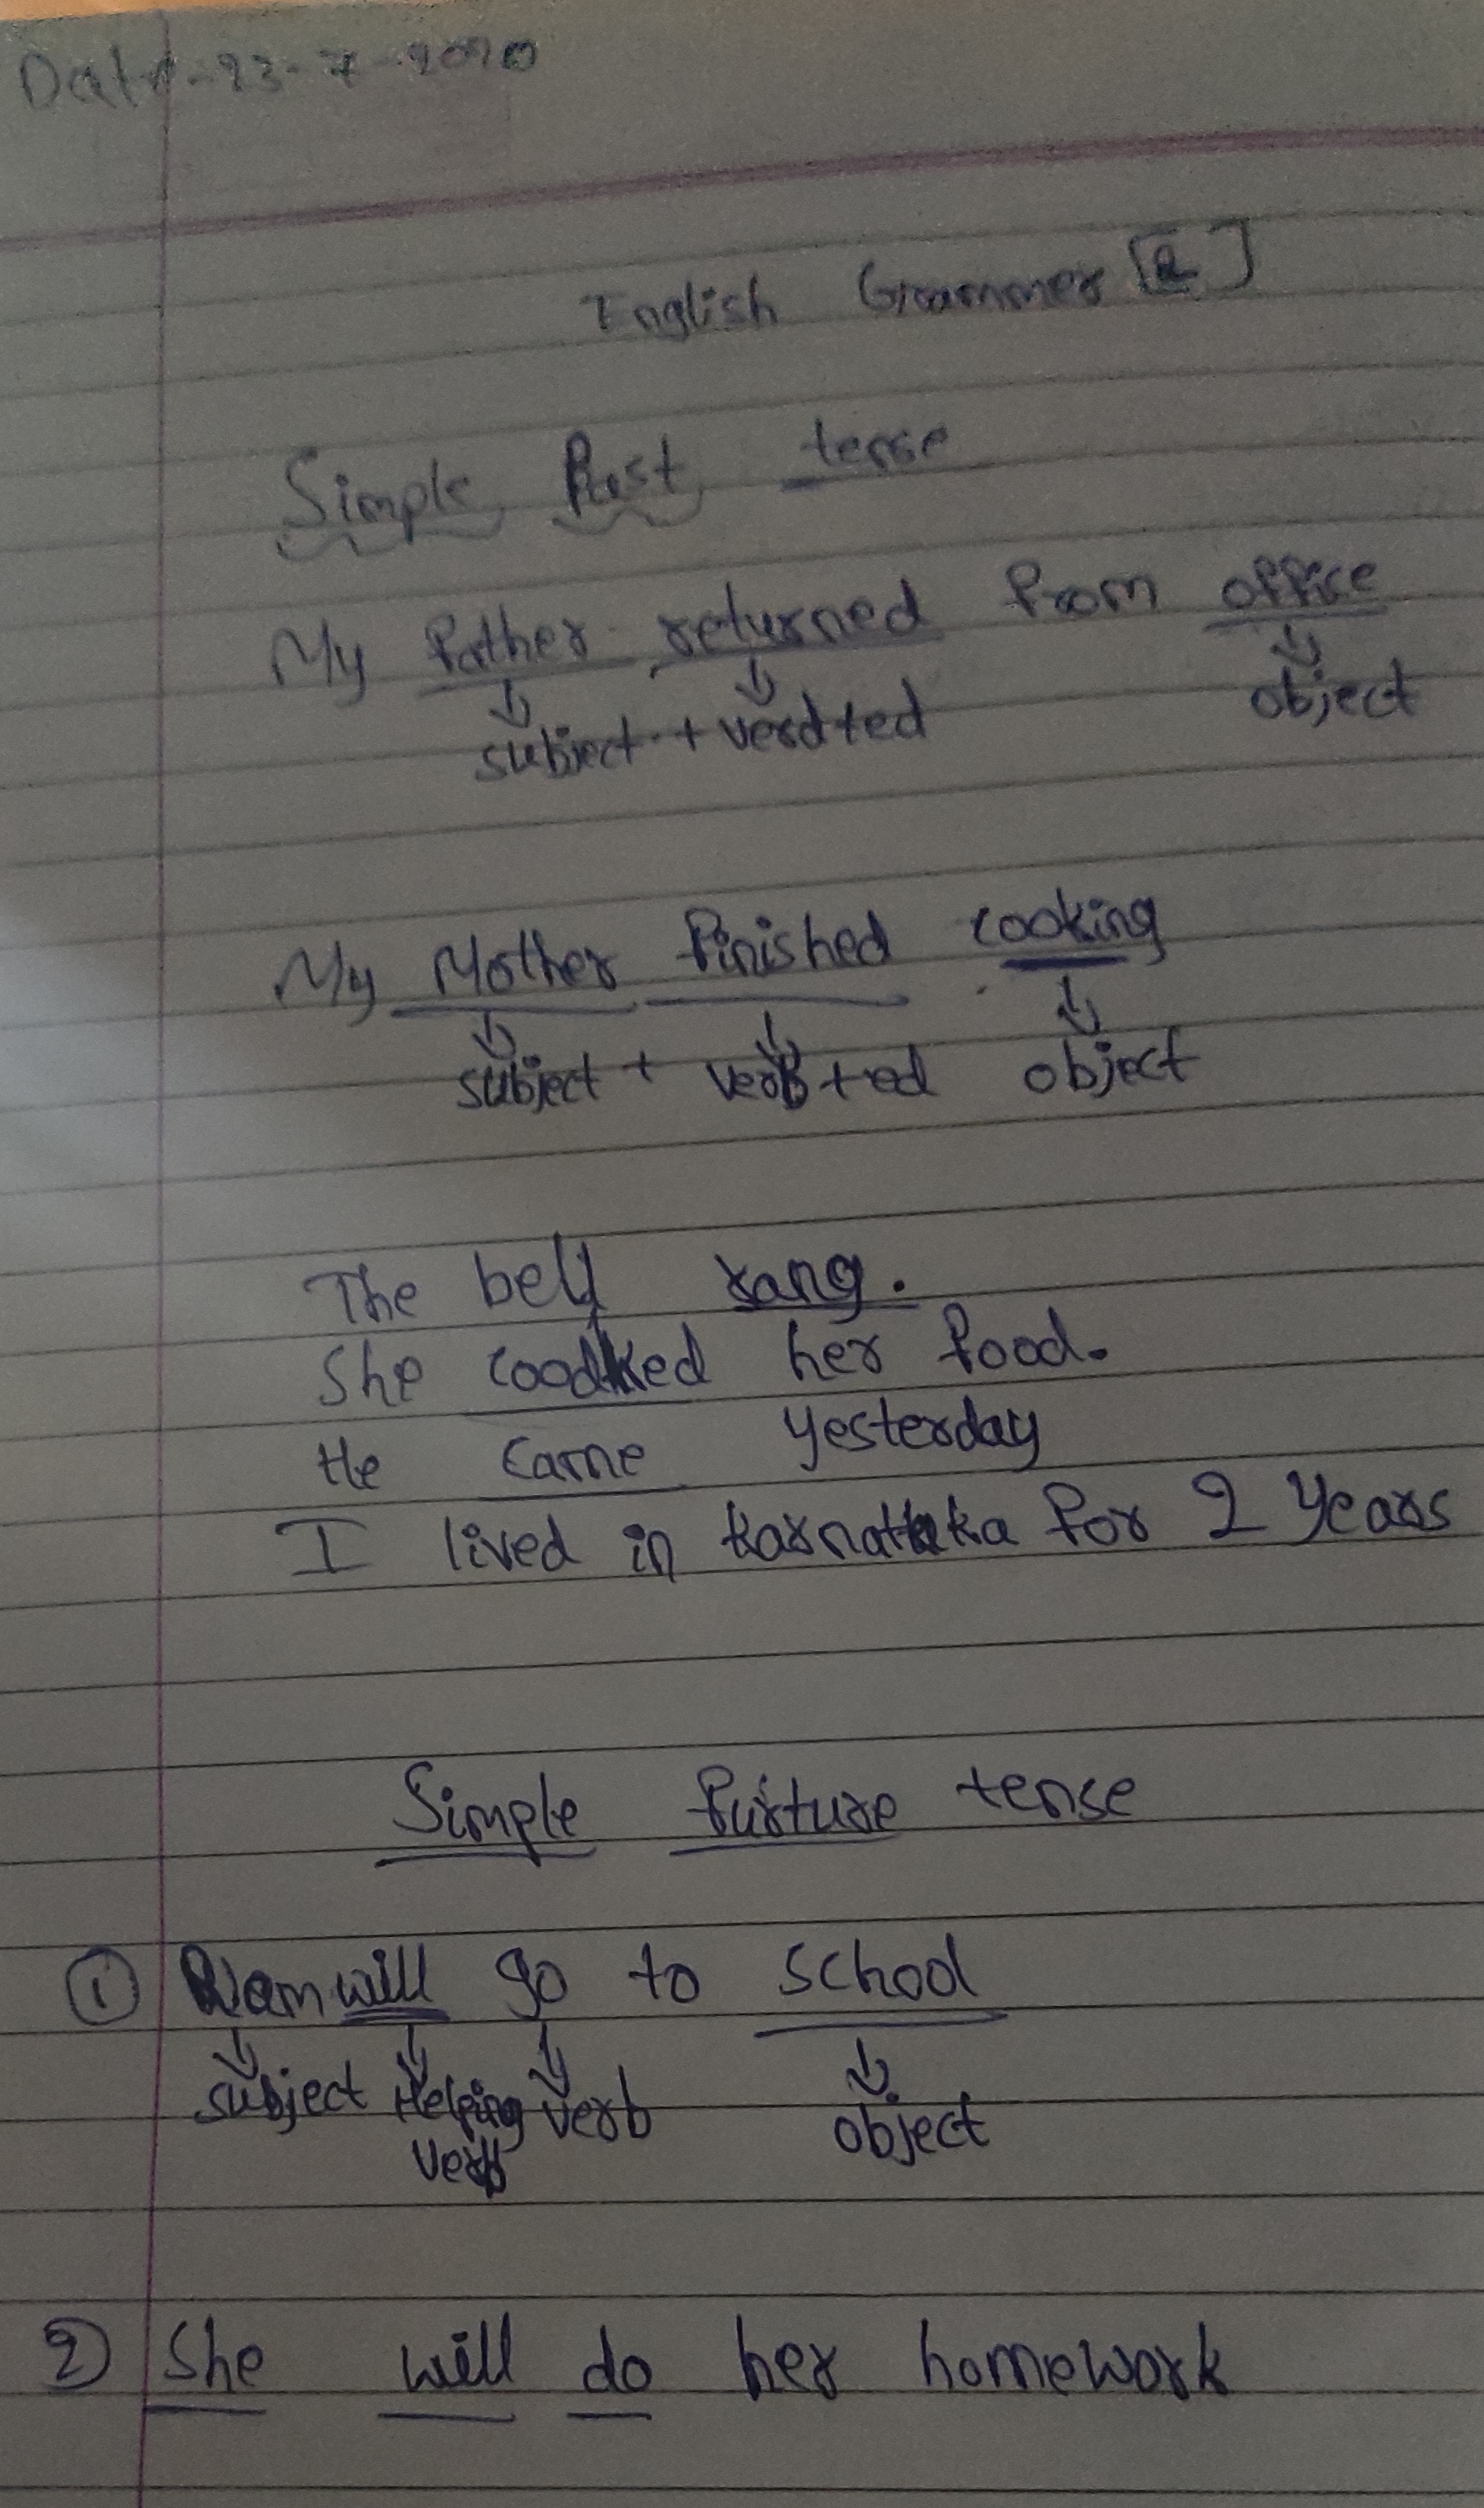 Date-23-7-2020
English Grammer [2]
Simple Past tense
My father returned from office
subject + verd+ed object
My Mother finished cooking
subject + verb+ed object
The bell rang.
She coodked her food.
He came yesterday
I lived in karnataka for 2 years
Simple furture tense
① Ram will go to school
subject Helping verb object
verb
2) She will do her homework